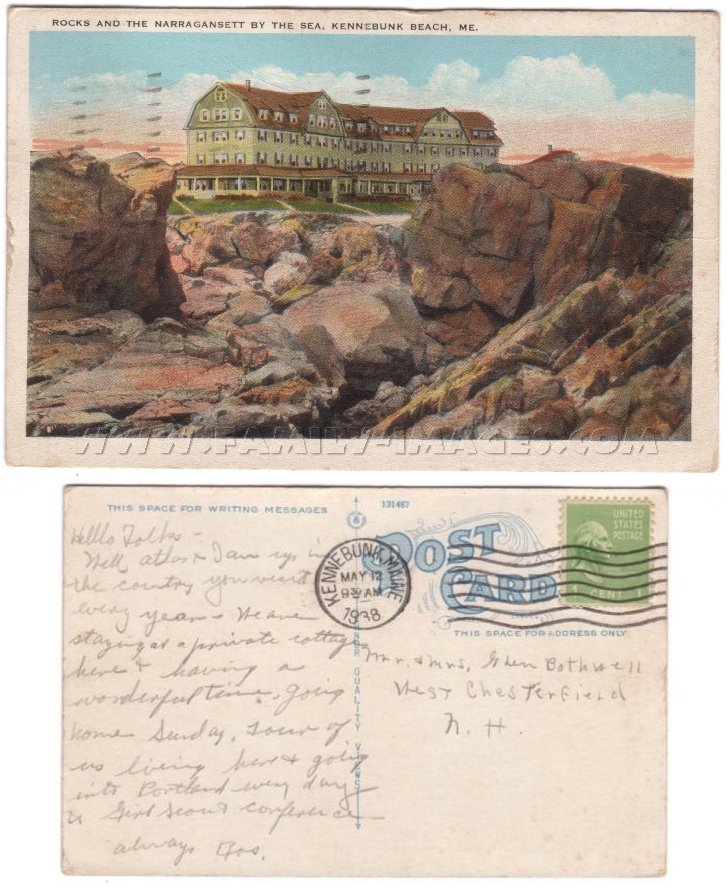 ROCKS AND THE NARRAGANSETT BY THE SEA, KENNEBUNK BEACH, ME.
WWW.FAMILY-IMAGES.COM
THIS SPACE FOR WRITING MESSAGES
131487
POST CARD
UNITED STATES POSTAGE
1 CENT 1
KENNEBUNK, MAINE
MAY 12
9 30 AM
1938
THIS SPACE FOR ADDRESS ONLY
NER QUALITY VIEWS
Helllo Folks -
Well, atlast I am up in
the country you visit
every year - We are
staying at a private cottage
here & having a
wonderful time. Going
home Sunday. Four of
us living here & going
into Portland every day
to Girl Scout conference -
always Ros.
Mr. & Mrs. Glen Bothwell
West Chesterfield
N. H.